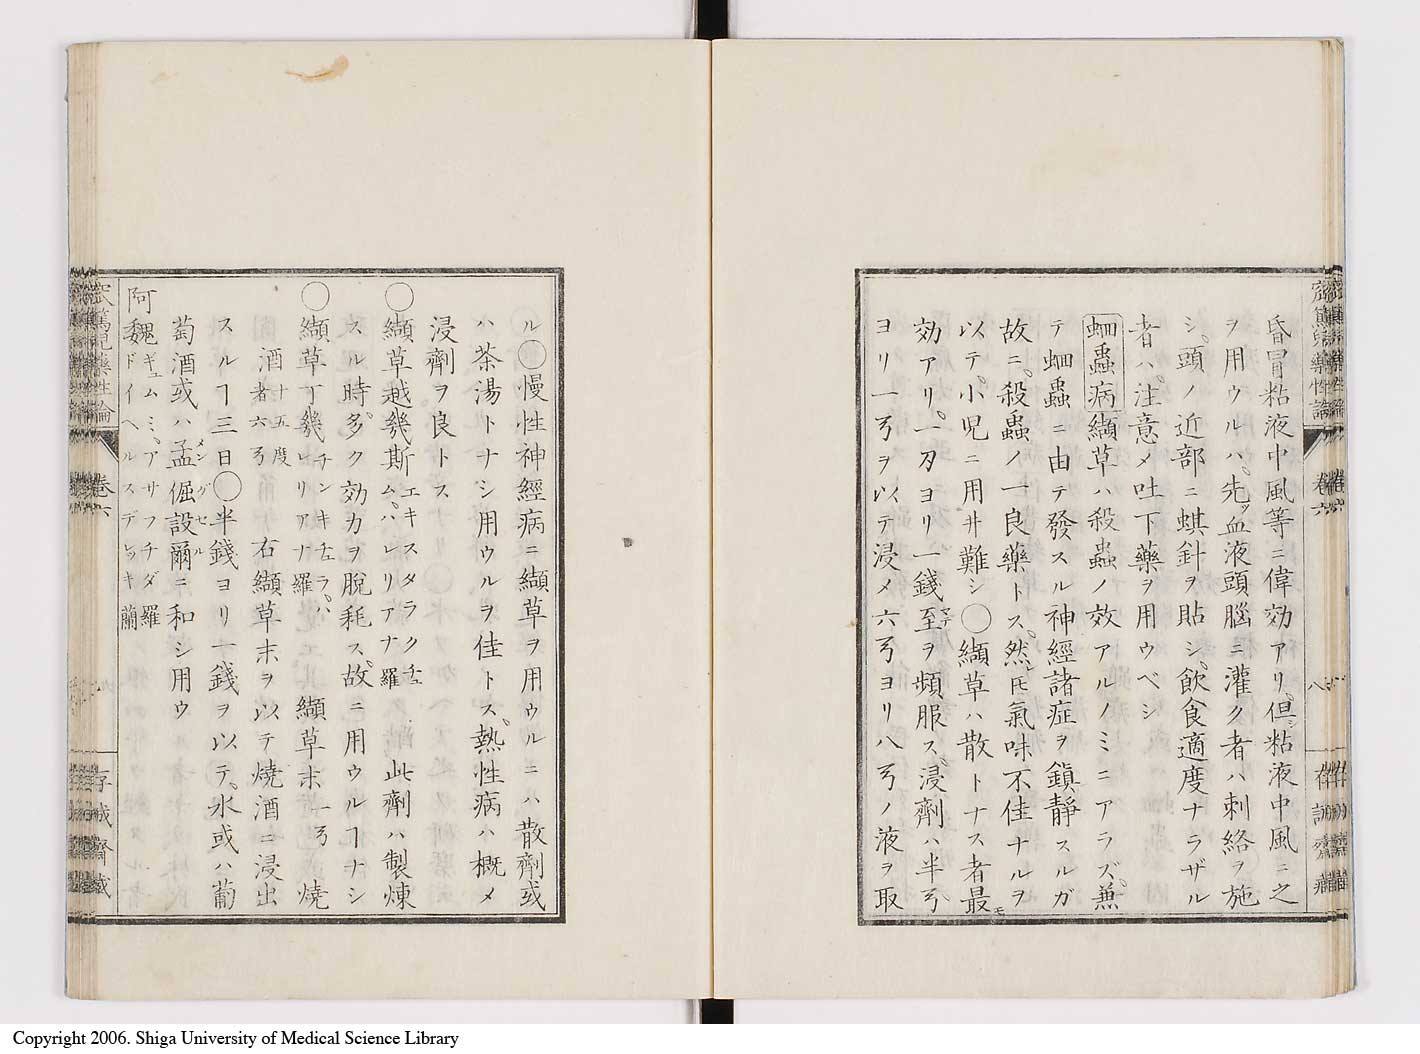 昏冒粘液中風等ニ偉効アリ但シ粘液中風ニ之
ヲ用ウルハ先ツ血液頭腦ニ灌ク者ハ刺絡ヲ施
シ頭ノ近部ニ蜞針ヲ貼シ飲食適度ナラザル
者ハ注意メ吐下藥ヲ用ウベシ
蛔蟲病纈草ハ殺蟲ノ效アルノミニアラズ兼
テ蛔蟲ニ由テ發スル神經諸症ヲ鎭靜スルガ
故ニ殺蟲ノ一良藥トス然𪜈氣味不佳ナルヲ
以テ小児ニ用井難シ〇纈草ハ散トナス者最モ
効アリ一刃ヨリ一錢至マデヲ頻服ス浸劑ハ半弓
ヨリ一弓ヲ以テ浸メ六弓ヨリ八弓ノ液ヲ取
ル〇慢性神經病ニ纈草ヲ用ウルニハ散劑或
ハ茶湯トナシ用ウルヲ佳トス熱性病ハ概メ
浸劑ヲ良トス
〇纈草越幾斯エキスタラクチュム、ハレリアナ羅此劑ハ製煉
スル時多ク効力ヲ脫耗ス故ニ用ウルヿナシ
〇纈草丁幾チンキチュラ、ハレリアナ羅纈草末一弓燒
酒十五度者六弓右纈草末ヲ以テ燒酒ニ浸出
スルヿ三日〇半錢ヨリ一錢ヲ以テ水或ハ葡
萄酒或ハ孟倔設爾メングセルニ和シ用ウ
阿魏ギュムミ、アサフチダ羅ドイヘルスデレッキ蘭
卷六
八
Copyright 2006. Shiga University of Medical Science Library